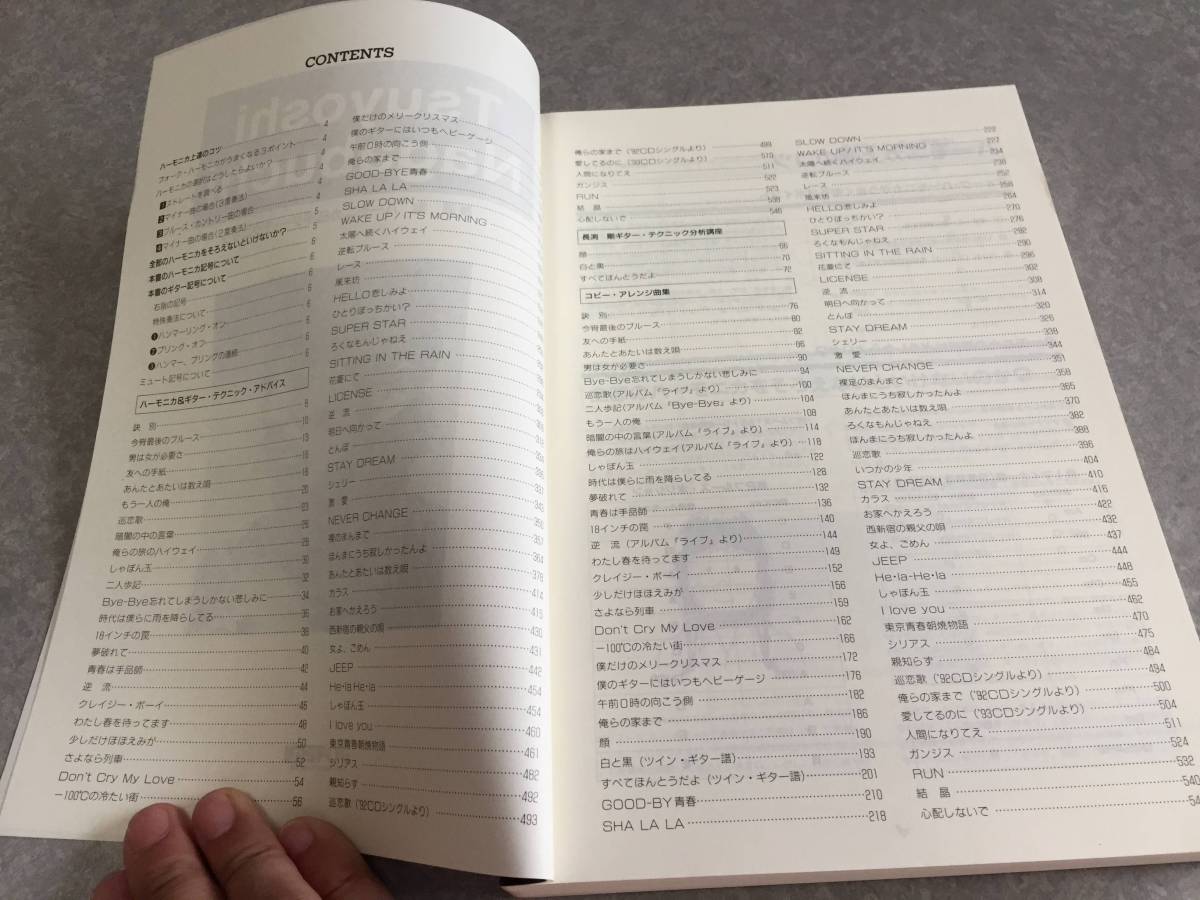 CONTENTS
ハーモニカ上達のコツ 4
フォーク・ハーモニカがうまくなる3ポイント 4
ハーモニカの選択はどうしたらよいか? 4
1 ストレートを調べる 4
2 マイナー曲の場合(3重奏法) 4
3 ブルース・カントリー曲の場合 4
4 マイナー曲の場合(2重奏法) 5
全部のハーモニカをそろえないといけないか? 5
本書のハーモニカ記号について 6
本書のギター記号について 6
右指の記号 6
特殊奏法について 6
❶ハンマーリング・オン 6
❷プリング・オフ 6
❸ハンマー、プリングの連続 6
ミュート記号について 6
ハーモニカ&ギター・テクニック・アドバイス
訣 別 8
今宵最後のブルース 10
男は女が必要さ 13
友への手紙 16
あんたとあたいは数え唄 18
もう一人の俺 20
巡恋歌 23
暗闇の中の言葉 26
俺らの旅のハイウェイ 28
しゃぼん玉 30
二人歩記 32
Bye-Bye忘れてしまうしかない悲しみに 34
時代は僕らに雨を降らしてる 36
18インチの罠 38
夢破れて 40
青春は手品師 42
逆 流 44
クレイジー・ボーイ 46
わたし春を待ってます 48
少しだけほほえみが 50
さよなら列車 52
Don't Cry My Love 54
-100℃の冷たい街 56
僕だけのメリークリスマス
僕のギターにはいつもヘビーゲージ
午前0時の向こう側
俺らの家まで
GOOD-BYE青春
SHA LA LA
SLOW DOWN
WAKE UP/IT'S MORNING
太陽へ続くハイウェイ
逆転ブルース
レース
風来坊
HELLO悲しみよ
ひとりぼっちかい?
SUPER STAR
ろくなもんじゃねえ
SITTING IN THE RAIN
花菱にて
LICENSE
逆 流
明日へ向かって
とんぼ
STAY DREAM
シェリー
激 愛 343
NEVER CHANGE 350
裸足のまんまで 357
ほんまにうち寂しかったんよ 364
あんたとあたいは数え唄 378
カラス 414
お家へかえろう 415
西新宿の親父の唄 430
女よ、ごめん 431
JEEP 442
He・la He・la 454
しゃぼん玉 454
I love you 460
東京青春朝焼物語 461
シリアス 482
親知らず 492
巡恋歌('92CDシングルより) 493
俺らの家まで('92CDシングルより) 499
愛してるのに('93CDシングルより) 510
人間になりてえ 511
ガンジス 522
RUN 523
結 晶 538
心配しないで 546
長渕 剛ギター・テクニック分析講座
顔 66
白と黒 70
すべてほんとうだよ 72
コピー・アレンジ曲集
訣 別 76
今宵最後のブルース 80
友への手紙 82
あんたとあたいは数え唄 86
男は女が必要さ 90
Bye-Bye忘れてしまうしかない悲しみに 94
巡恋歌(アルバム『ライブ』より) 100
二人歩記(アルバム『Bye-Bye』より) 104
もう一人の俺 108
暗闇の中の言葉(アルバム『ライブ』より) 114
俺らの旅はハイウェイ(アルバム『ライブ』より) 118
しゃぼん玉 122
時代は僕らに雨を降らしてる 128
夢破れて 132
青春は手品師 136
18インチの罠 140
逆 流(アルバム『ライブ』より) 144
わたし春を待ってます 149
クレイジー・ボーイ 152
少しだけほほえみが 156
さよなら列車 159
Don't Cry My Love 162
-100℃の冷たい街 166
僕だけのメリークリスマス 172
僕のギターにはいつもヘビーゲージ 176
午前0時の向こう側 182
俺らの家まで 186
顔 190
白と黒(ツイン・ギター譜) 193
すべてほんとうだよ(ツイン・ギター譜) 201
GOOD-BY青春 210
SHA LA LA 218
SLOW DOWN 222
WAKE UP/IT'S MORNING 227
太陽へ続くハイウェイ 234
逆転ブルース 238
レース 252
風来坊 258
HELLO悲しみよ 264
ひとりぼっちかい? 270
SUPER STAR 276
ろくなもんじゃねえ 282
SITTING IN THE RAIN 290
花菱にて 296
LICENSE 302
逆 流 308
明日へ向かって 314
とんぼ 320
STAY DREAM 326
シェリー 338
激 愛 344
NEVER CHANGE 351
裸足のまんまで 358
ほんまにうち寂しかったんよ 365
あんたとあたいは数え唄 370
ろくなもんじゃねえ 382
ほんまにうち寂しかったんよ 388
巡恋歌 396
いつかの少年 404
STAY DREAM 410
カラス 416
お家へかえろう 422
西新宿の親父の唄 432
女よ、ごめん 437
JEEP 444
He・la-He・la 448
しゃぼん玉 455
I love you 462
東京青春朝焼物語 470
シリアス 475
親知らず 484
巡恋歌('92CDシングルより) 494
俺らの家まで('92CDシングルより) 500
愛してるのに('93CDシングルより) 504
人間になりてえ 511
ガンジス 524
RUN 532
結 晶 540
心配しないで